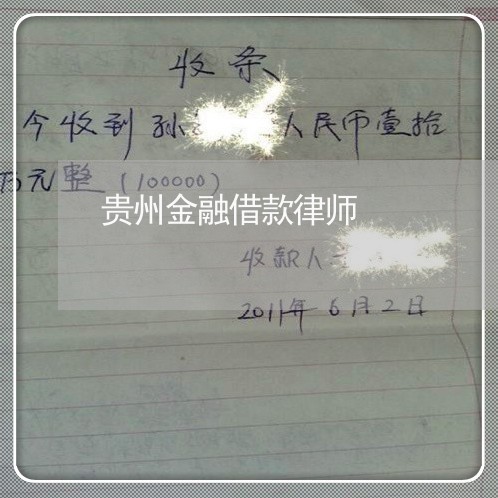 收条
今收到孙人民币壹拾
万元整（100000）
贵州金融借款律师
收款人
2011年6月2日